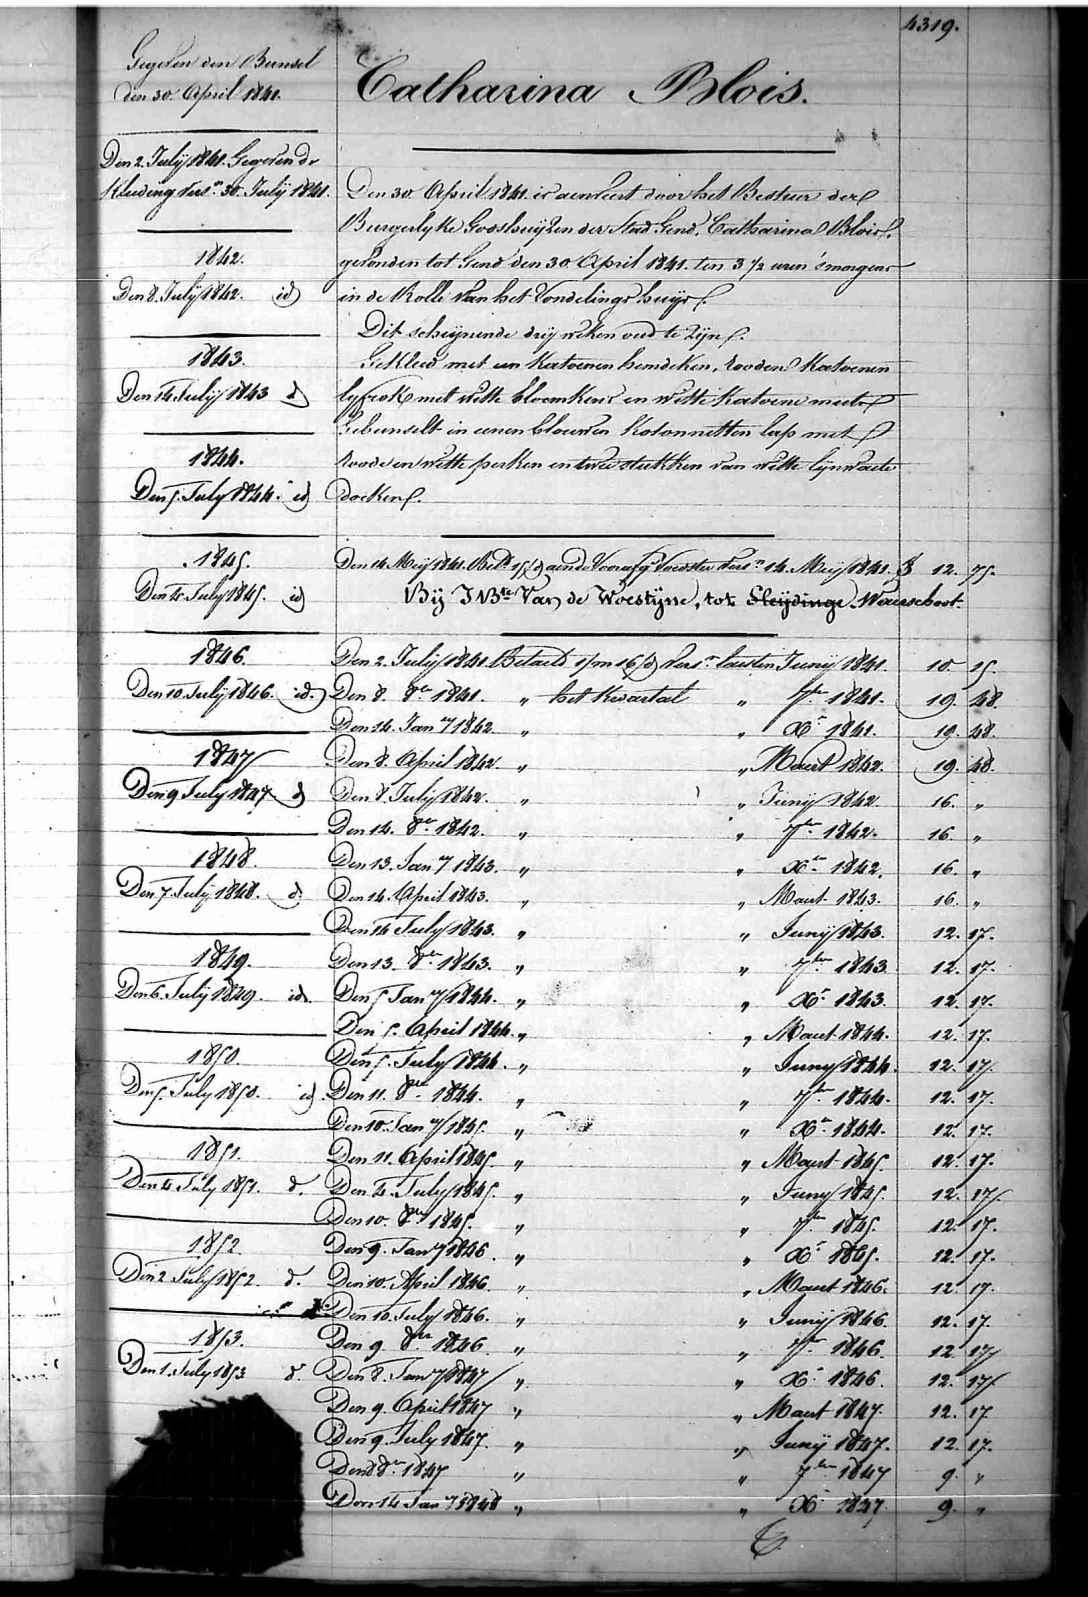 4319.
Gegeven den Bunsel
den 30. April 1841.
Den 2. Julij 1841. Gegeven de
Kleeding vers.n 30. Julij 1841.
1842.
Den 8. Julij 1842. id
1843.
Den 14. Julij 1843 d
1844.
Den 5. July 1844. id
1845.
Den 4. July 1845. id
1846.
Den 10. July 1846. id.
1847
Den 9 July 1847 d
1848.
Den 7. July 1848. d.
1849.
Den 6. Julij 1849. id.
1850.
Den 5. July 1850. id.
1851.
Den 4 July 1851. d.
1852.
Den 2 July 1852 d.
1853.
Den 1. July 1853 d.
Catharina Blois.
Den 30. April 1841. is aenveert door het Bestier der
Burgerlyke Godshuijzen der Stad Gend, Catharina Blois.
gevonden tot Gend den 30. April 1841. ten 3 1/2 uren 'smorgens
in de Rolle van het Vondelings huijs.
Dit scheijnende drij weken oud te zijn.
Gekleed met een katoenen hemdeken, rooden katoenen
lyfrok met witte bloemkens en witte katoene muts
Gebunselt in eenen blouwen kotonnetten lap met
roode en witte perken en twee stukken van witte lijnwaete
doeken.
Den 14. Meij 1841. Bet. 15/ aen de Voorzg. Voedster vers.n 14. Meij 1841. 12. 75.
Bij J. B.te Van de Woestijne, tot Sleijdinge Waerschoot.
Den 2. Julij 1841. Betaeld 1/m 16/ vers.n laesten Junij 1841. 10. 15.
Den 8. 8er 1841. „ het Kwartal „ 7er 1841. 19. 48.
Den 14. Jan.y 1842 „ „ Xr 1841. 19. 48.
Den 8. April 1842 „ „ Maert 1842. 19. 48.
Den 8. July 1842. „ „ Junij 1842 16. „
Den 14. 8er 1842. „ „ 7er 1842. 16. „
Den 13. Jan.y 1843. „ „ Xer 1842. 16. „
Den 14. April 1843. „ „ Maert 1843. 16. „
Den 14 July 1843. „ „ Junij 1843. 12. 17.
Den 13. 8er 1843. „ „ 7ber 1843 12. 17.
Den 5 Jan.y 1844. „ „ Xr 1843. 12. 17.
Den 5. April 1844. „ „ Maert 1844. 12. 17.
Den 5. July 1844. „ „ Juny 1844. 12. 17.
Den 11. 8er 1844. „ „ 7er 1844. 12. 17.
Den 10. Jan.y 1845. „ „ Xer 1844. 12. 17.
Den 11. April 1845. „ „ Maert 1845. 12. 17.
Den 4. July 1845. „ „ Juny 1845. 12. 17.
Den 10. 8er 1845. „ „ 7er 1845. 12. 17.
Den 9. Jan.y 1846 „ „ Xr 1845. 12. 17.
Den 10. April 1846. „ „ Maert 1846. 12. 17.
Den 10. July 1846. „ „ Junij 1846. 12. 17.
Den 9 8er 1846 „ „ 7er 1846. 12 17
Den 8. Jan.y 1847 „ „ Xr 1846. 12. 17.
Den 9. April 1847 „ „ Maert 1847. 12. 17.
Den 9. July 1847. „ „ Junij 1847. 12. 17.
Den 8 8er 1847 „ „ 7ber 1847 9. „
Den 14 Jan.y 1848 „ „ Xr 1847 9. „